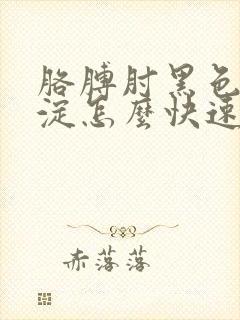 胳膊肘黑色
淀怎麽快速
赤落落